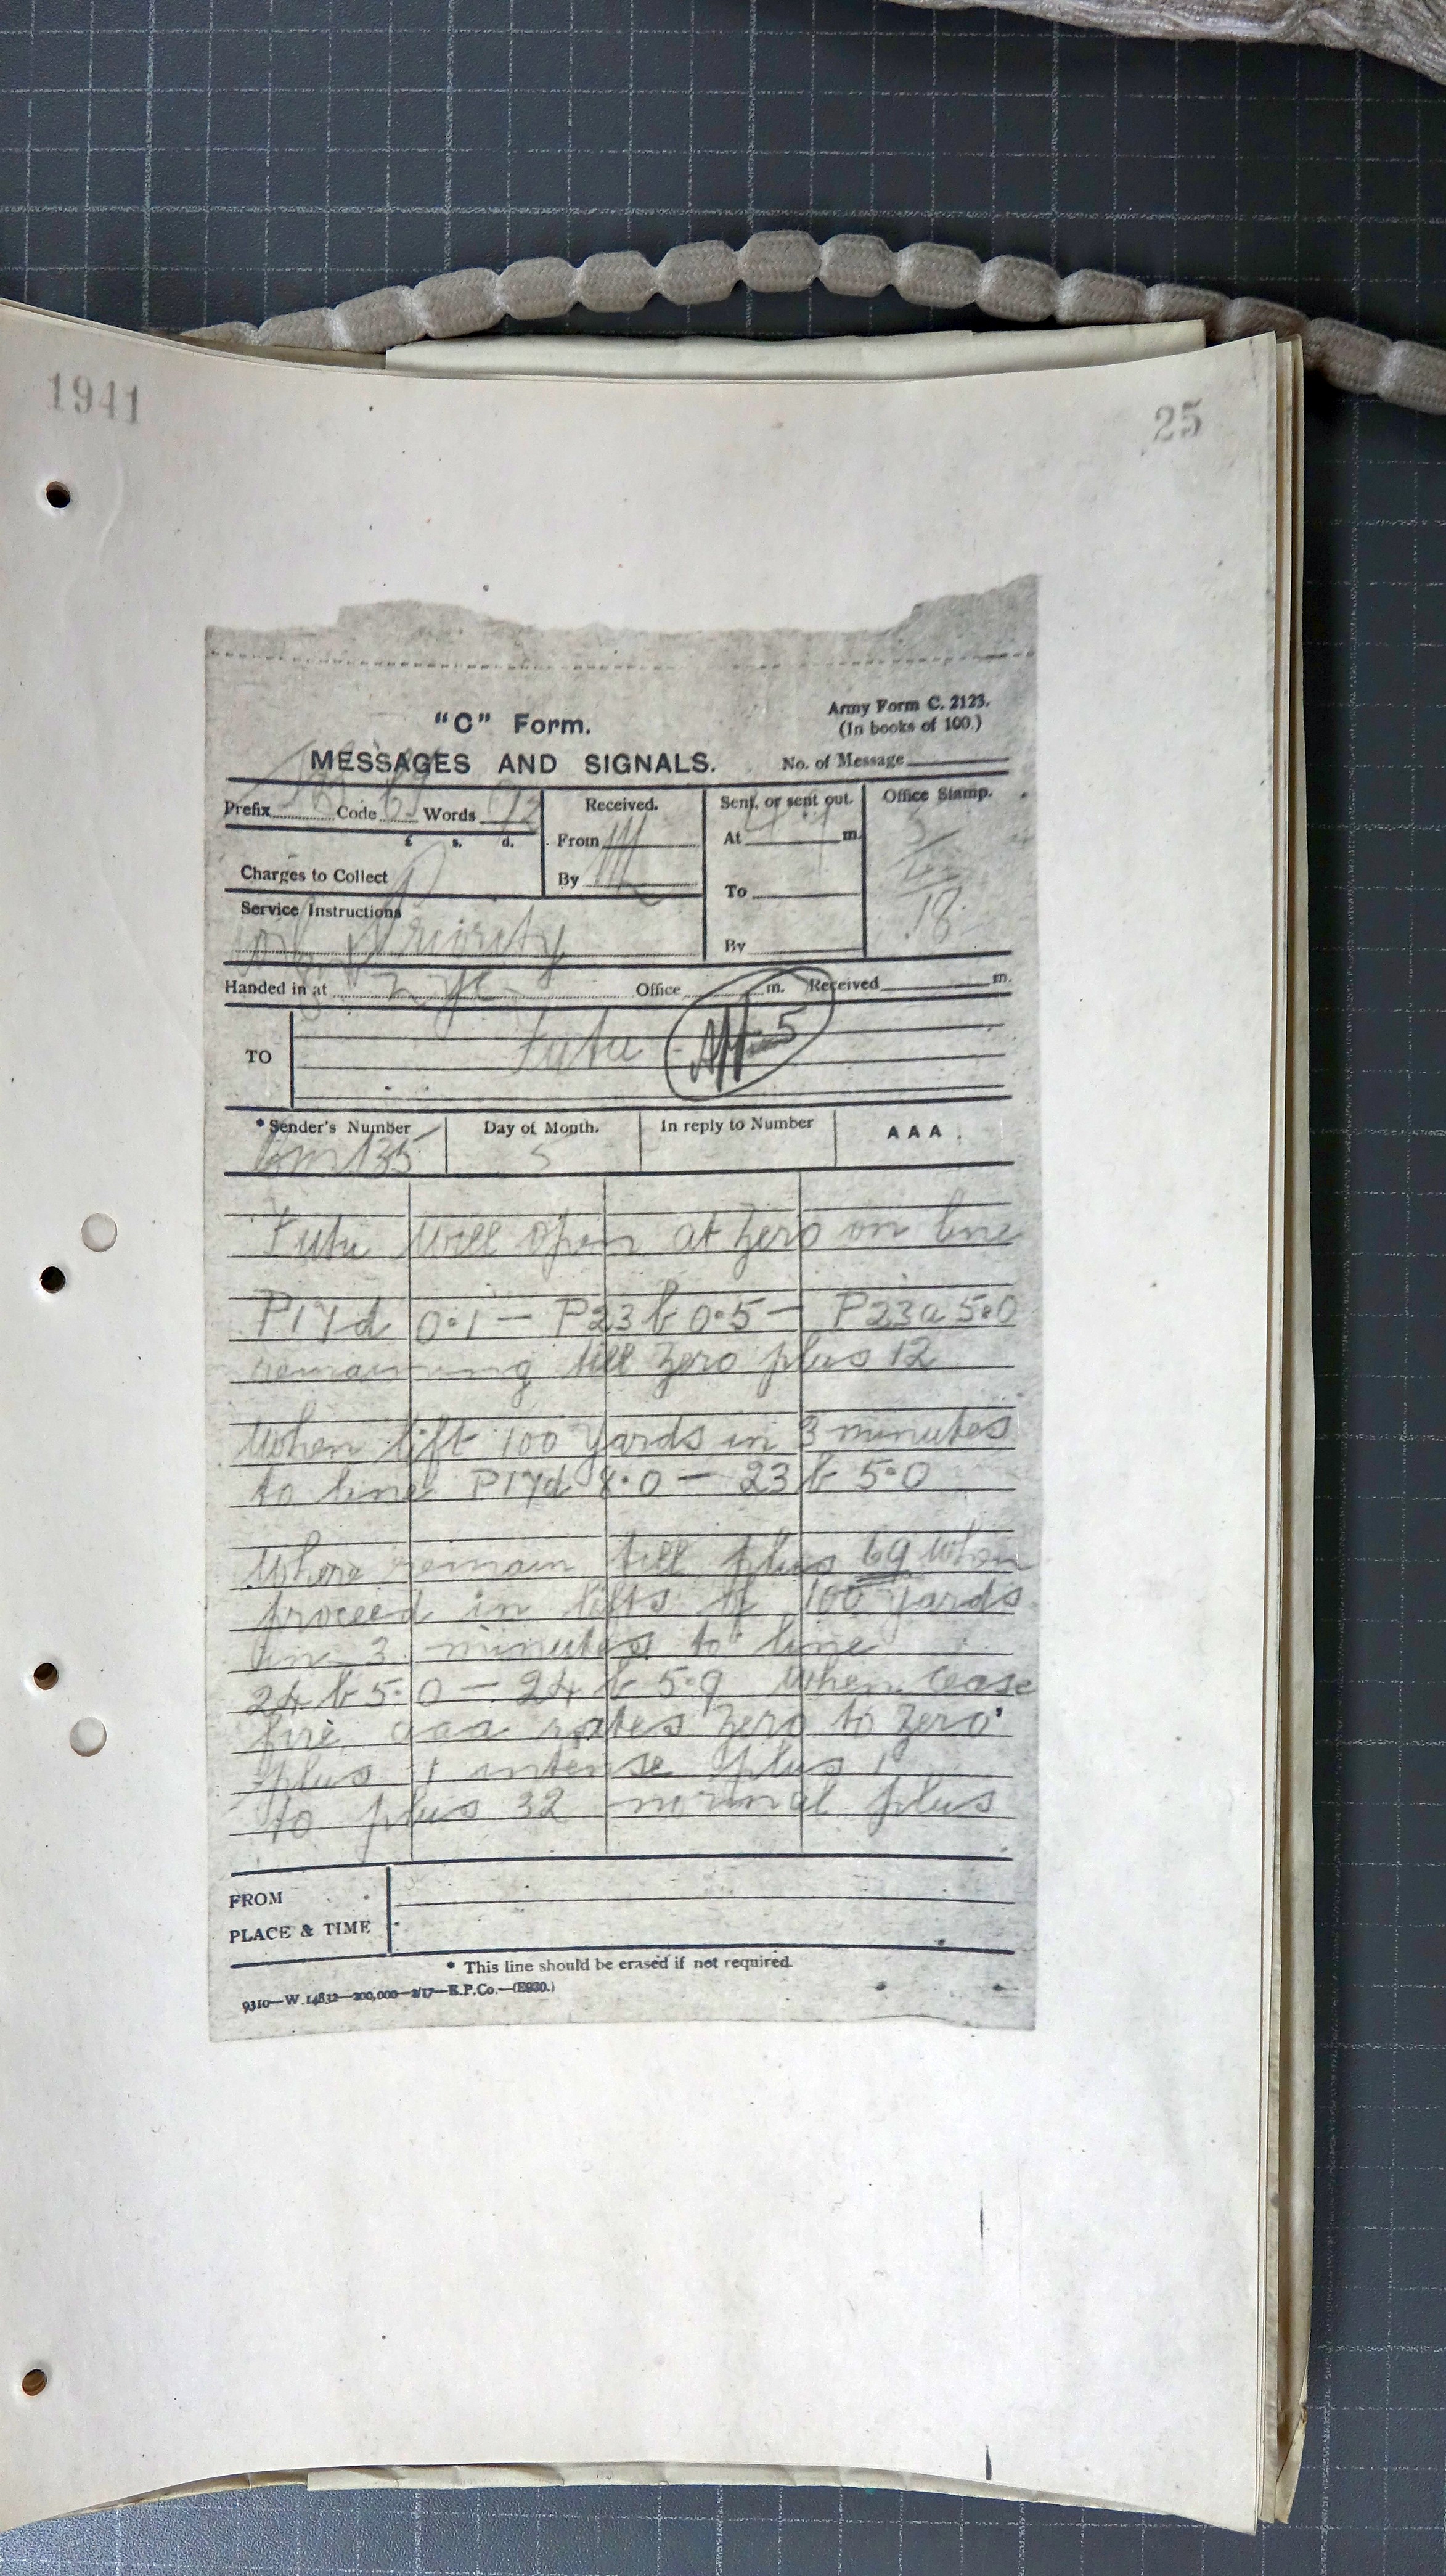 1941
25
"C" Form.
Army Form C. 2123.
(In books of 100.)
MESSAGES AND SIGNALS.
No. of Message
Prefix Code Words 92
Received.
Sent, or sent out.
Office Stamp.
£ s. d.
From
At m.
5/4/18
Charges to Collect
By
To
Service Instructions
Priority
By
Handed in at Office m. Received m.
TO Futu App 5
* Sender's Number
Day of Month.
In reply to Number
AAA.
Bm 135
5
Futu will open at Zero on line
P17d 0.1 — P23b 0.5 — P23a 5.0
remaining till Zero plus 12
When lift 100 yards in 3 minutes
to line P17d 8.0 — 23b 5.0
Where remain till plus 69 when
proceed in lifts of 100 yards
in 3 minutes to line
24 b 5.0 — 24 b 5.9 when cease
fire aaa rates Zero to Zero
plus 1 intense plus 1
to plus 32 normal plus
FROM
PLACE & TIME
* This line should be erased if not required.
9310—W.14832—200,000—2/17—E.P.Co.—(E930.)